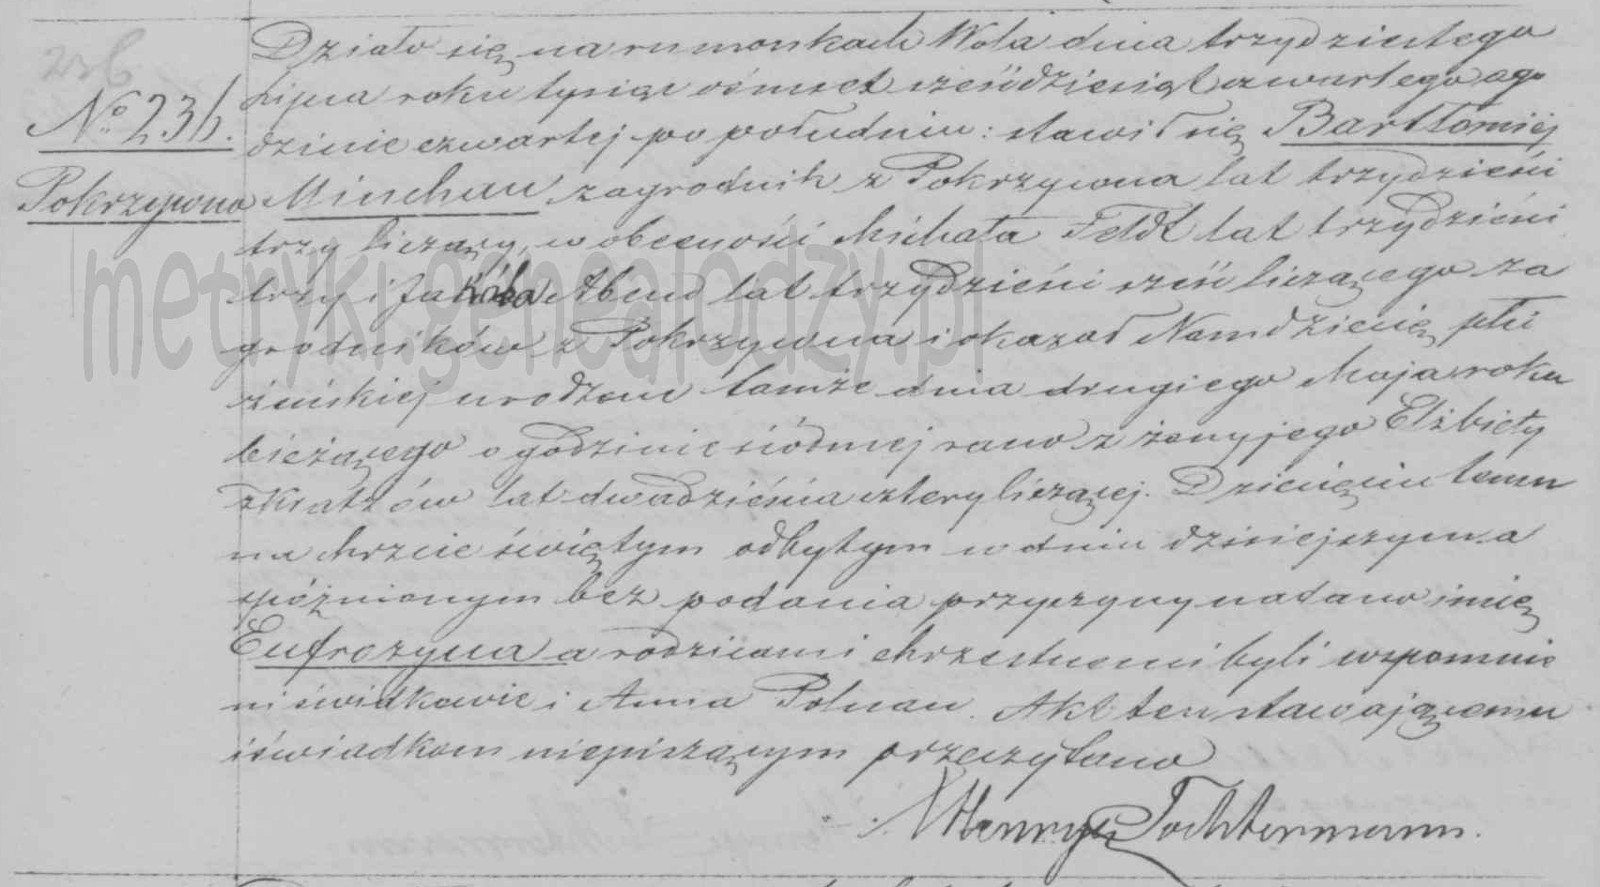 236
Nº 236.
Pokrzywno
Działo się na rumonkach Wola dnia trzydziestego
Lipca roku tysiąc ośmset sześćdziesiąt czwartego o go
dzinie czwartej po południu: stawił się Bartłomiej
Minchau zagrodnik z Pokrzywna lat trzydzieści
trzy liczący, w obecności Michała Feldt lat trzydzieści
trzy i Jakóba Abend lat trzydzieści sześć liczącego za
grodników z Pokrzywna i okazał Nam dziecię płci
żeńskiej urodzone tamże dnia drugiego Maja roku
bieżącego o godzinie siódmej rano z żony jego Elżbiety
z Kratzów lat dwadzieścia cztery liczącej. Dziecięciu temu
na chrzcie świętym odbytym w dniu dzisiejszym a
spóźnionym bez podania przyczyny nadano imię
Eufrozyna a rodzicami chrzestnemi byli wspomnie
ni świadkowie i Anna Polnau. Akt ten stawającemu
i świadkom niepiszącym przeczytano
X Henryk Tochtermann.
metryki.genealodzy.pl